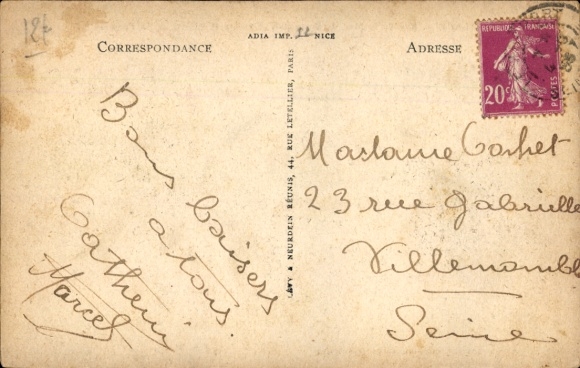 12f
ADIA IMP. 22 NICE
CORRESPONDANCE
ADRESSE
REPUBLIQUE FRANÇAISE
20c
POSTES
LÉVY & NEURDEIN RÉUNIS, 44, RUE LETELLIER, PARIS
Bons baisers
a tous
Marcel
Madame
23 rue Gabrielle
Villemomble
Seine